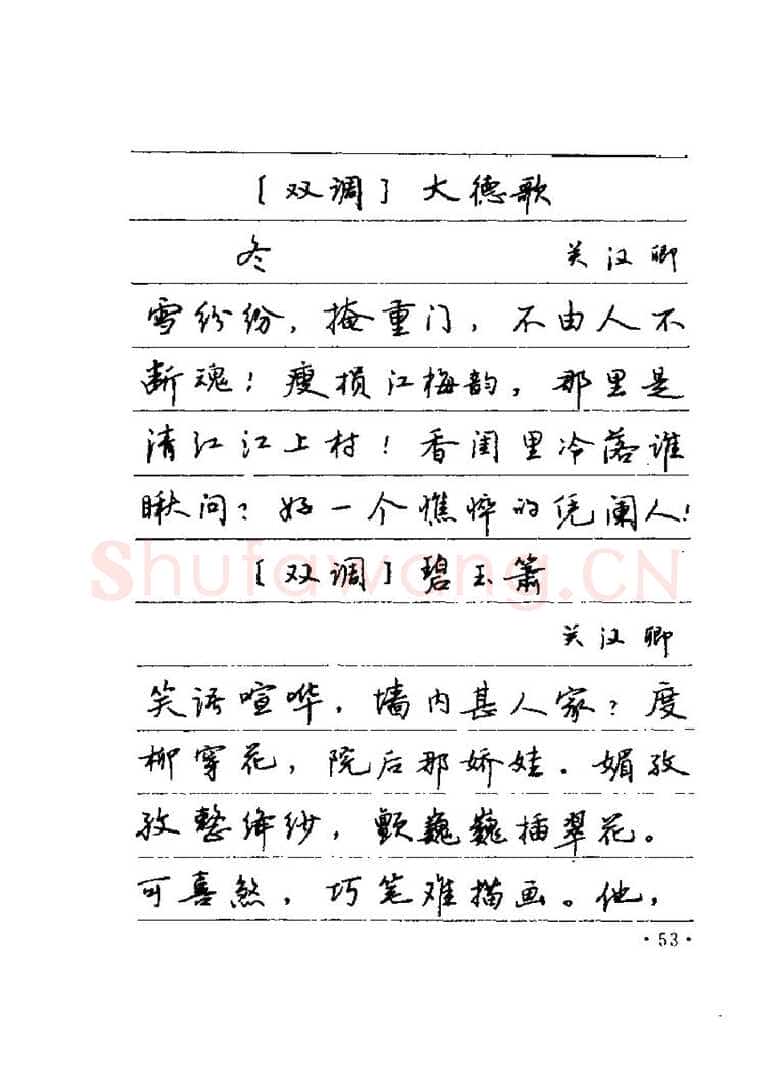 ［双调］大德歌
冬 关汉卿
雪纷纷，掩重门，不由人不
断魂！瘦损江梅韵，那里是
清江江上村！香闺里冷落谁
瞅问？好一个憔悴的凭阑人！
ShuFawang.CN
［双调］碧玉箫
关汉卿
笑语喧哗，墙内甚人家？度
柳穿花，院后那娇娃。媚孜
孜整绛纱，颤巍巍插翠花。
可喜煞，巧笔难描画。他，
·53·